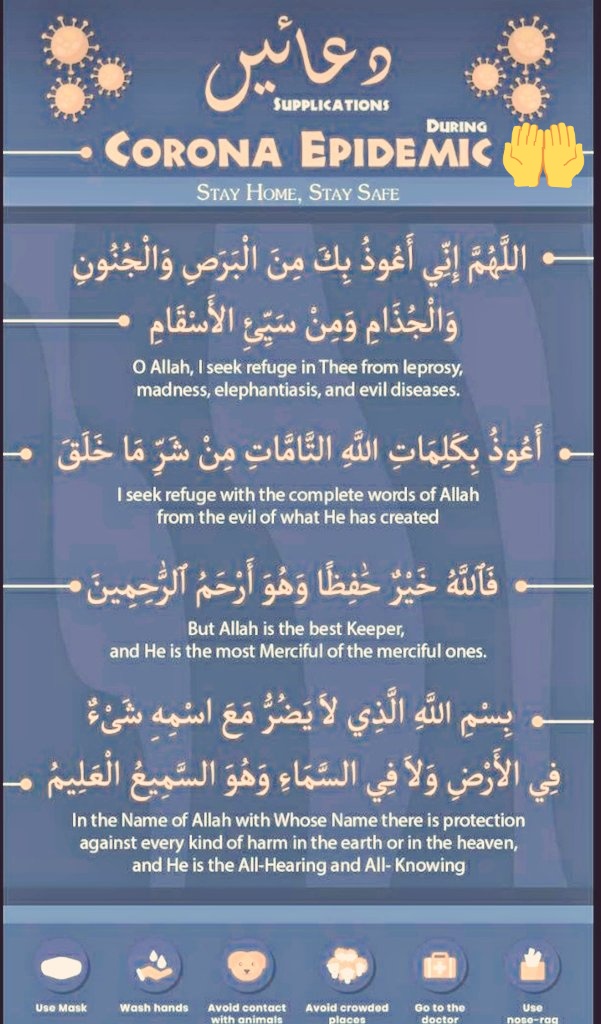 دعائیں
SUPPLICATIONS
DURING
CORONA EPIDEMIC
STAY HOME, STAY SAFE
اللَّهُمَّ إِنِّي أَعُوذُ بِكَ مِنَ الْبَرَصِ وَالْجُنُونِ
وَالْجُذَامِ وَمِنْ سَيِّئِ الأَسْقَامِ
O Allah, I seek refuge in Thee from leprosy,
madness, elephantiasis, and evil diseases.
أَعُوذُ بِكَلِمَاتِ اللَّهِ التَّامَّاتِ مِنْ شَرِّ مَا خَلَقَ
I seek refuge with the complete words of Allah
from the evil of what He has created
فَٱللَّهُ خَيْرٌ حَٰفِظًا وَهُوَ أَرْحَمُ ٱلرَّٰحِمِينَ
But Allah is the best Keeper,
and He is the most Merciful of the merciful ones.
بِسْمِ اللَّهِ الَّذِي لاَ يَضُرُّ مَعَ اسْمِهِ شَىْءٌ
فِي الأَرْضِ وَلاَ فِي السَّمَاءِ وَهُوَ السَّمِيعُ الْعَلِيمُ
In the Name of Allah with Whose Name there is protection
against every kind of harm in the earth or in the heaven,
and He is the All-Hearing and All- Knowing
Use Mask
Wash hands
Avoid contact
with animals
Avoid crowded
places
Go to the
doctor
Use
nose-rag